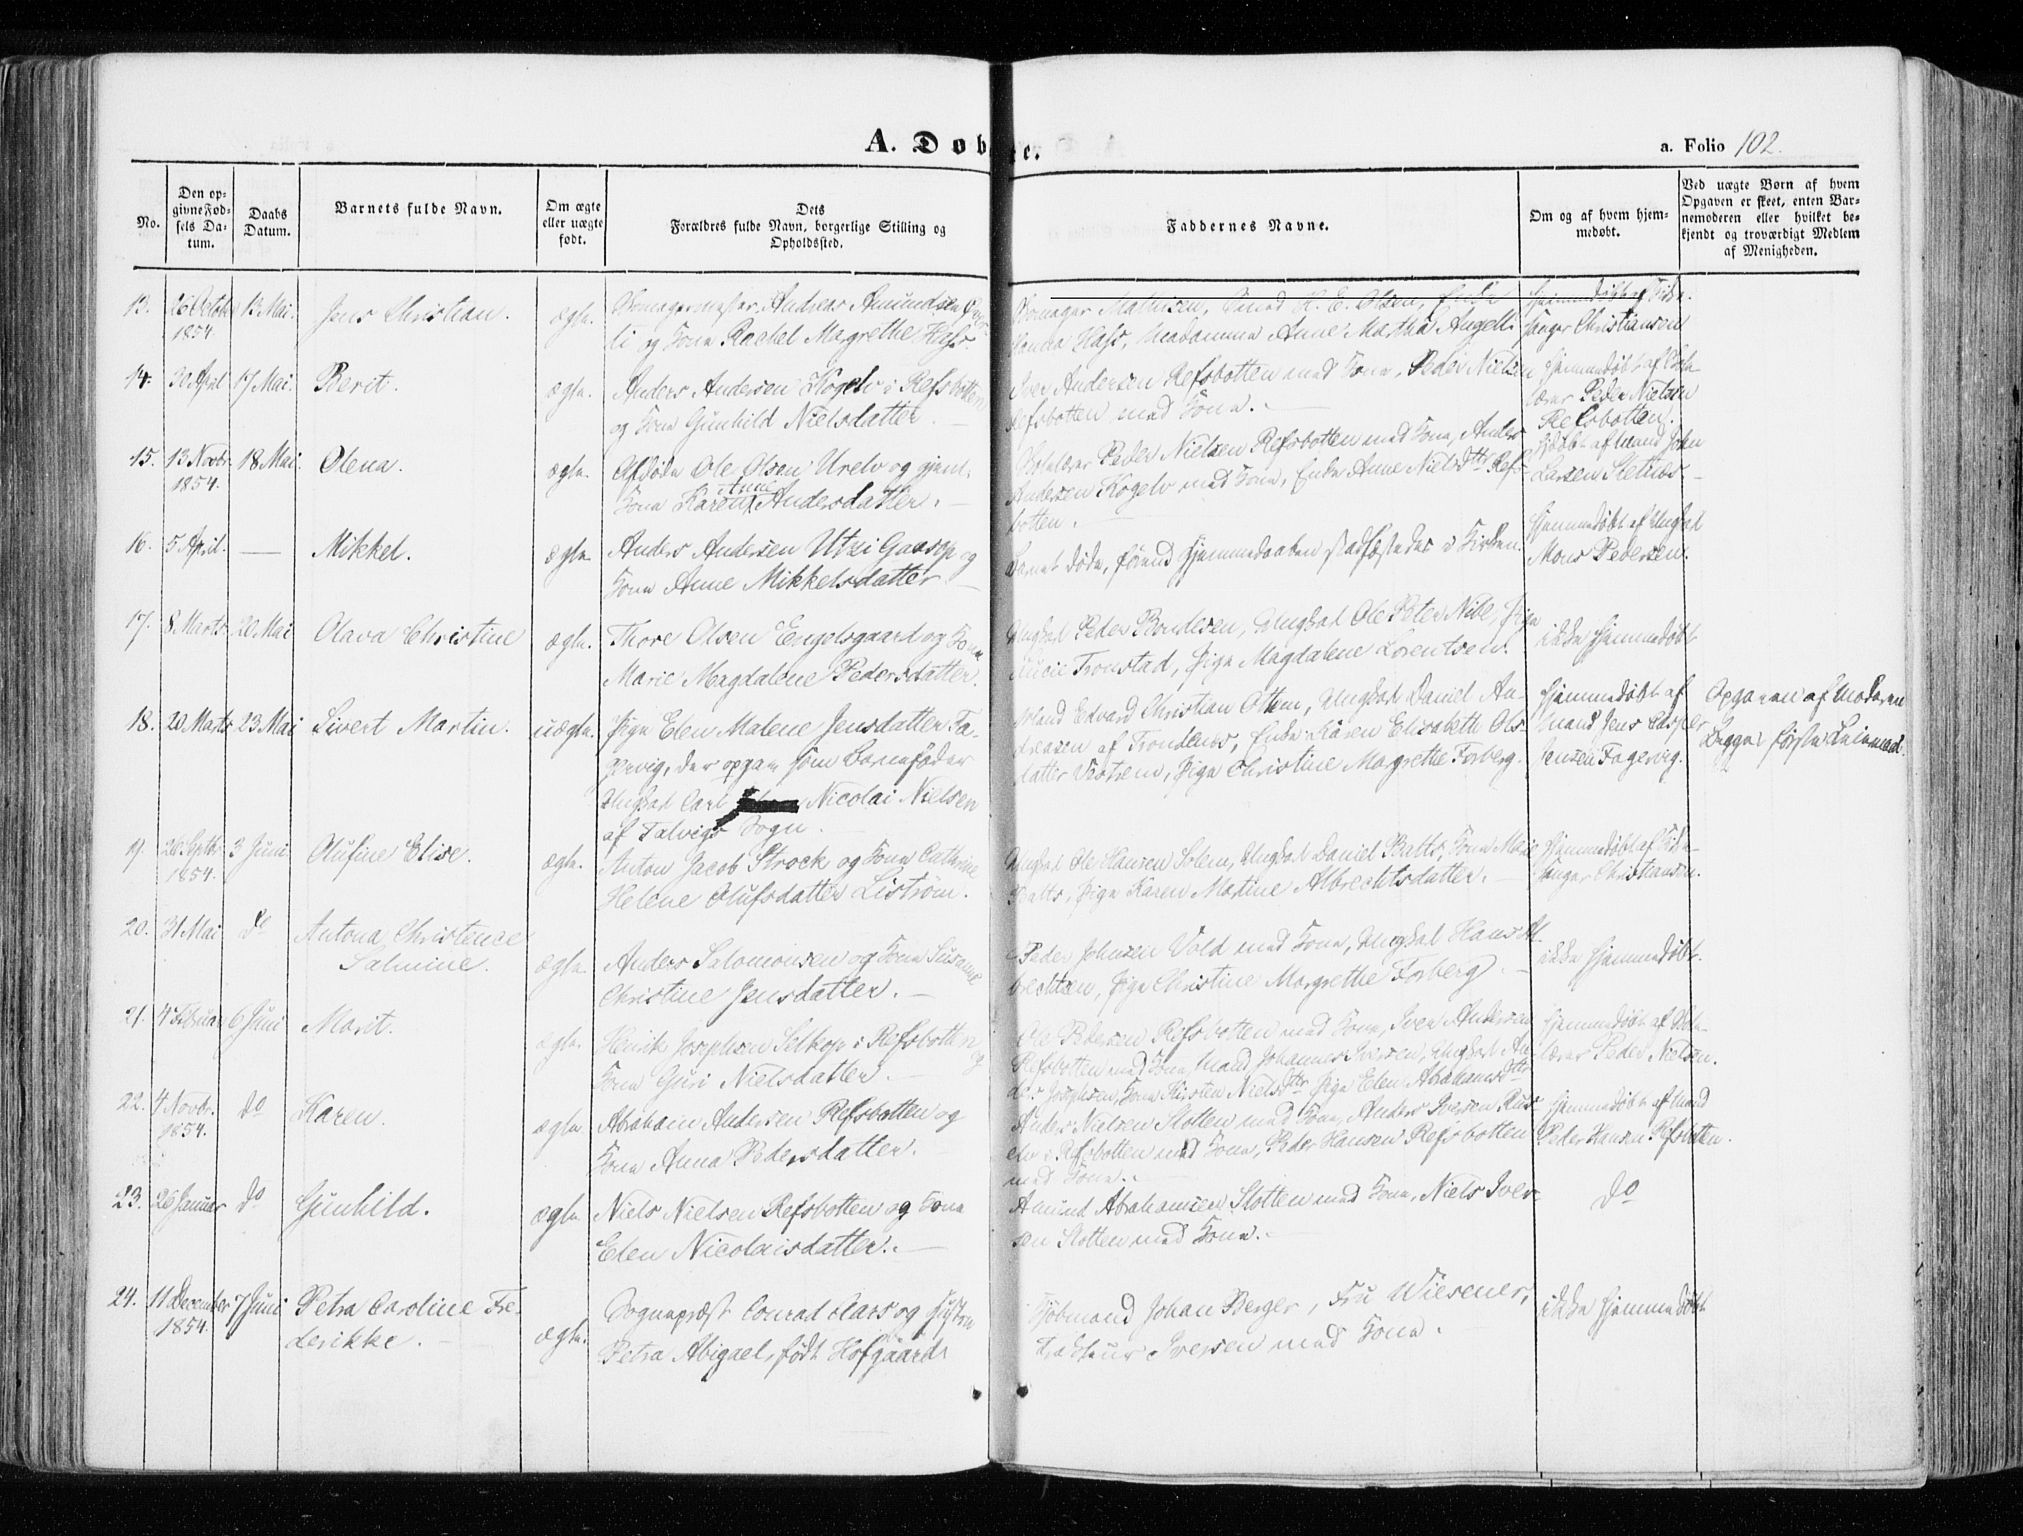 A. Døbte.
a. Folio 102.
No.
Den op-
givne Fød-
sels Da-
tum.
Daabs
Datum.
Barnets fulde Navn.
Om ægte
eller uægte
født.
Dets
Forældres fulde Navn, borgerlige Stilling og
Opholdssted.
Faddernes Navne.
Om og af hvem hjem-
medøbt.
Ved uægte Børn af hvem
Opgaven er skeet, enten Bar-
nemoderen eller hvilket be-
kjendt og troværdigt Medlem
af Menigheden.
13. 26 October 13 Mai. Jens Christian. ægte. Andreas Amundsen
1854.
og Kone Rachel Margrethe Hass.
Mathisen, Smed H. E. Olsen, Enke
Hanna Hass, Madamme Anne Martha Angell.
Hjemmedøbt af Kirke-
sanger Christiansen
14. 30 April 17 Mai. Berit. ægte. Anders Andersen Kogelv i Refsbotten
og Kone Gunhild Nielsdatter.
Iver Andersen Refsbotten med Kone, Peder Nielsen
Refsbotten med Kone.
Hjemmedøbt af Skole-
lærer Peder Nielsen
Refsbotten.
15. 13 Novbr. 18 Mai. Olena. ægte. Afdøde Ole Olsen Urelv og gjenl.
1854.
Kone Karen Anne Andersdatter.
Skolelærer Peder Nielsen Refsbotten med Kone, Anders
Andersen Kogelv med Kone, Enke Anne Nielsdtr Refs-
botten.
Hjdøbt af Mand John
Larsen Stetnæs.
16. 5 April. — Mikkel. ægte Anders Andersen Utzi Gaasop og
Kone Anne Mikkelsdatter
Barnet døde, førend Hjemmedaaben stadfæstedes i Kirken.
Hjemmedøbt af Ungkal
Mons Pedersen.
17. 8 Marts 20 Mai Olava Christine ægte. Thore Olsen Engelsgaard og Kone
Marie Magdalene Pedersdatter.
Ungkal Peder Bendixen, Ungkal Ole Peter Nibe, Pige
Lucie Tronstad, Pige Magdalene Lorentsen.
ikke hjemmedøbt
18. 20 Marts 23 Mai Sivert Martin. uægte. Pige Elen Malene Jensdatter Fa-
gervig, der opgav som Barnefader
Ungkal Carl Nicolai Nielsen
af Talvigs Sogn.
Edvard Christian Ottem, Ungkal Daniel An-
dreasen af Trondenæs, Enke Karen Elisabeth Ols-
datter Vestrem, Pige Christine Margrethe Forberg.
Hjemmedøbt af
Mand Jens Casper
Hensen Fagervig.
Opgaven af Moderen
Begges første Leiermaal.
19. 26 Septbr 3 Juni Olufine Elise. ægte. Anton Jacob Strock og Kone Cathrine
1854.
Helene Olufsdatter Liström.
Ungkal Ole Hansen Solem, Ungkal Daniel Batts, Kone Maria
Batts, Pige Karen Martine Albrechtsdatter.
Hjemmedøbt af Kirke-
sanger Christiansen.
20. 31 Mai do Antona Christence
Salmine. ægte. Anders Salomonsen og Kone Susanne
Christine Jensdatter.
Peder Johnsen Vold med Kone, Ungkal Hans Al-
brechtsen, Pige Christine Margrethe Forberg.
ikke hjemmedøbt.
21. 4 Februar 6 Juni Marit. ægte. Henrik Josephsen Selkop i Refsbotten og
Kone Guri Nielsdatter.
Ole Pedersen Refsbotten med Kone, Iver Andersen
Refsbotten med Kone Mand Johannes Iversen, Ungkal An-
ders Josephsen, Kone Kirsten Nielsdtr Pige Elen Abrahamsdtr
Hjemmedøbt af Skole-
lærer Peder Nielsen.
22. 4 Novbr. do Karen. ægte Abraham Andersen Refsbotten og
1854.
Kone Anna Pedersdatter.
Anders Nielsen Slotten med Kone, Anders Iversen Rus-
elv i Refsbotten med Kone, Peder Hansen Refsbotten
med Kone.
Hjemmedøbt af Mand
Peder Hansen Refsbotten.
23. 26 Januar do Gunhild. ægte. Niels Nielsen Refsbotten og Kone
Elen Nicolaisdatter.
Amund Abrahamsen Slotten med Kone, Niels Iver-
sen Slotten med Kone.
do
24. 11 December 7 Juni Petra Caroline Fre-
1854.
derikke. ægte. Sognepræst Conrad Aars og Hustru
Petra Abigael, født Hofgaard.
Kjøbmand Johan Berger, Fru Wiesener,
Iversen med Kone.
ikke hjemmedøbt